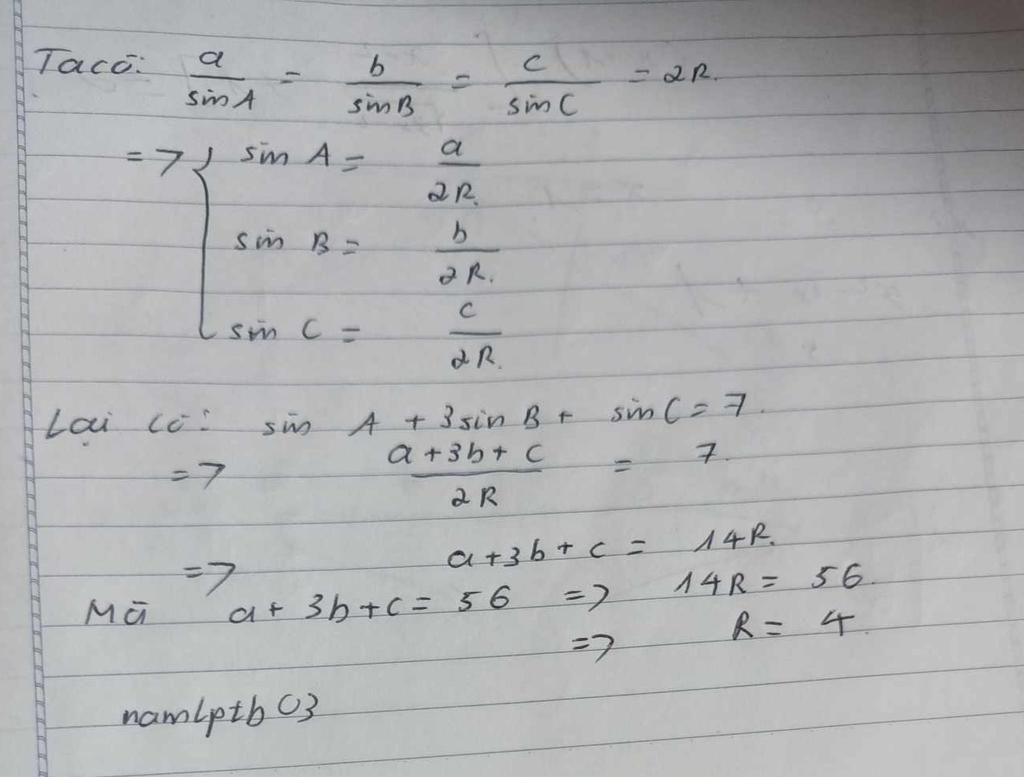 Ta có: a/sin A = b/sin B = c/sin C = 2R.
=> { sin A = a/2R.
sin B = b/2R.
sin C = c/2R.
Lại có: sin A + 3sin B + sin C = 7.
=> (a+3b+c)/2R = 7.
=> a+3b+c = 14R.
Mà a+3b+c = 56 => 14R = 56.
=> R = 4.
namlptb03